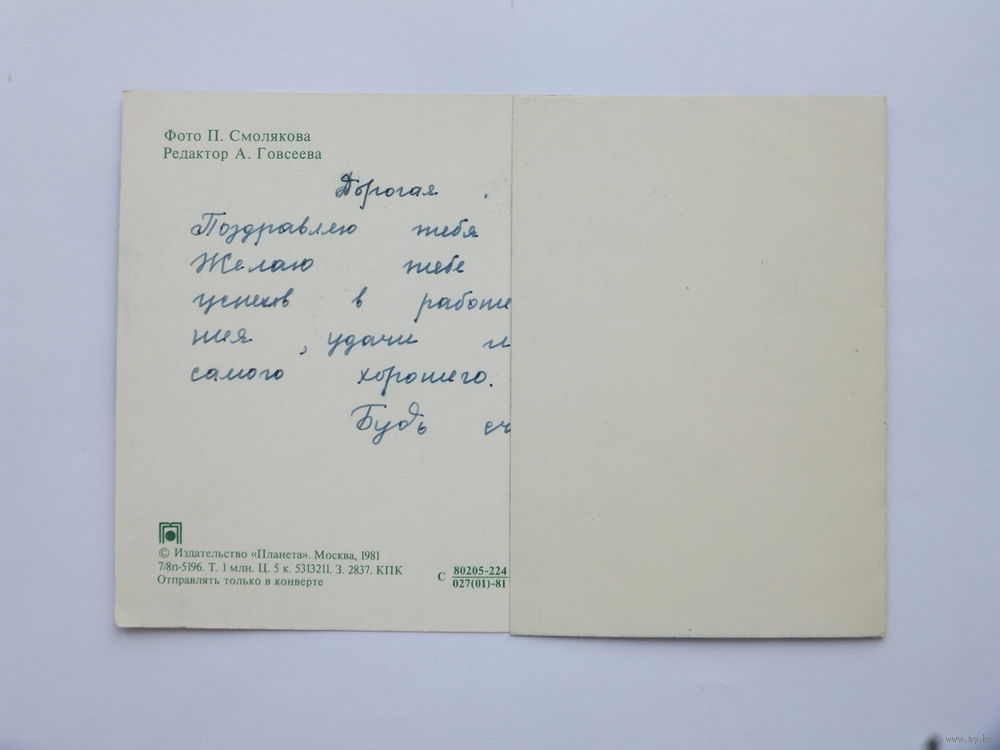 Фото П. Смолякова
Редактор А. Говсеева
Дорогая .
Поздравляю тебя
Желаю тебе
успехов в работе
ния, удачи и
самого хорошего.
Будь сч
© Издательство «Планета». Москва, 1981
7/8п-5196. Т. 1 млн. Ц. 5 к. 5313211. З. 2837. КПК
Отправлять только в конверте
С 80205-224
027(01)-81
www.ay.by